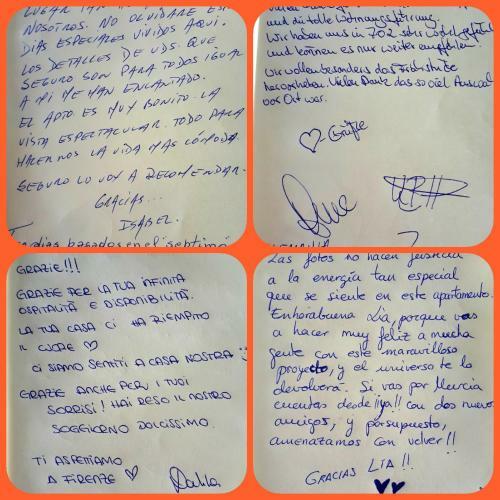 LUGAR TAN
NOSOTROS. NO OLVIDARE ES
DIAS ESPECIALES VIVIDOS AQUI.
LOS DETALLES DE UDS. QUE
SEGURO SON PARA TODOS IGUAL
A MI ME HAN ENCANTADO.
EL APTO ES MUY BONITO. LA
VISTA ESPECTACULAR. TODO PARA
HACERNOS LA VIDA MAS CÓMODA.
SEGURO LO VOY A RECOMENDAR.
GRACIAS...
ISABEL.
días pasados en el septimo
und die tolle Wohnungsführung.
Wir haben uns in 702 sehr wohl gefühlt
und können es nur weiter empfehlen.
Wir wollen besonders das Frühstück
hervorheben. Vielen Dank das so viel Auswahl
vor Ort war.
♡-Grüße
GRAZIE!!!
GRAZIE PER LA TUA INFINITA
OSPITALITÀ E DISPONIBILITÀ.
LA TUA CASA CI HA RIEMPITO
IL CUORE ♡
CI SIAMO SENTITI A CASA NOSTRA :)
GRAZIE ANCHE PER I TUOI
SORRISI! HAI RESO IL NOSTRO
SOGGIORNO DOLCISSIMO.
TI ASPETTIAMO
A FIRENZE ♡
Las fotos no hacen justicia
a la energía tan especial
que se siente en este apartamento.
Enhorabuena Lía, porque vas
a hacer muy feliz a mucha
gente con este maravilloso
proyecto, y el universo te lo
devolverá. Si vas por Murcia
cuentas desde ¡¡ya!! con dos nuevos
amigos, y porsupuesto,
amenazamos con volver!!
GRACIAS LIA!!
♥♥